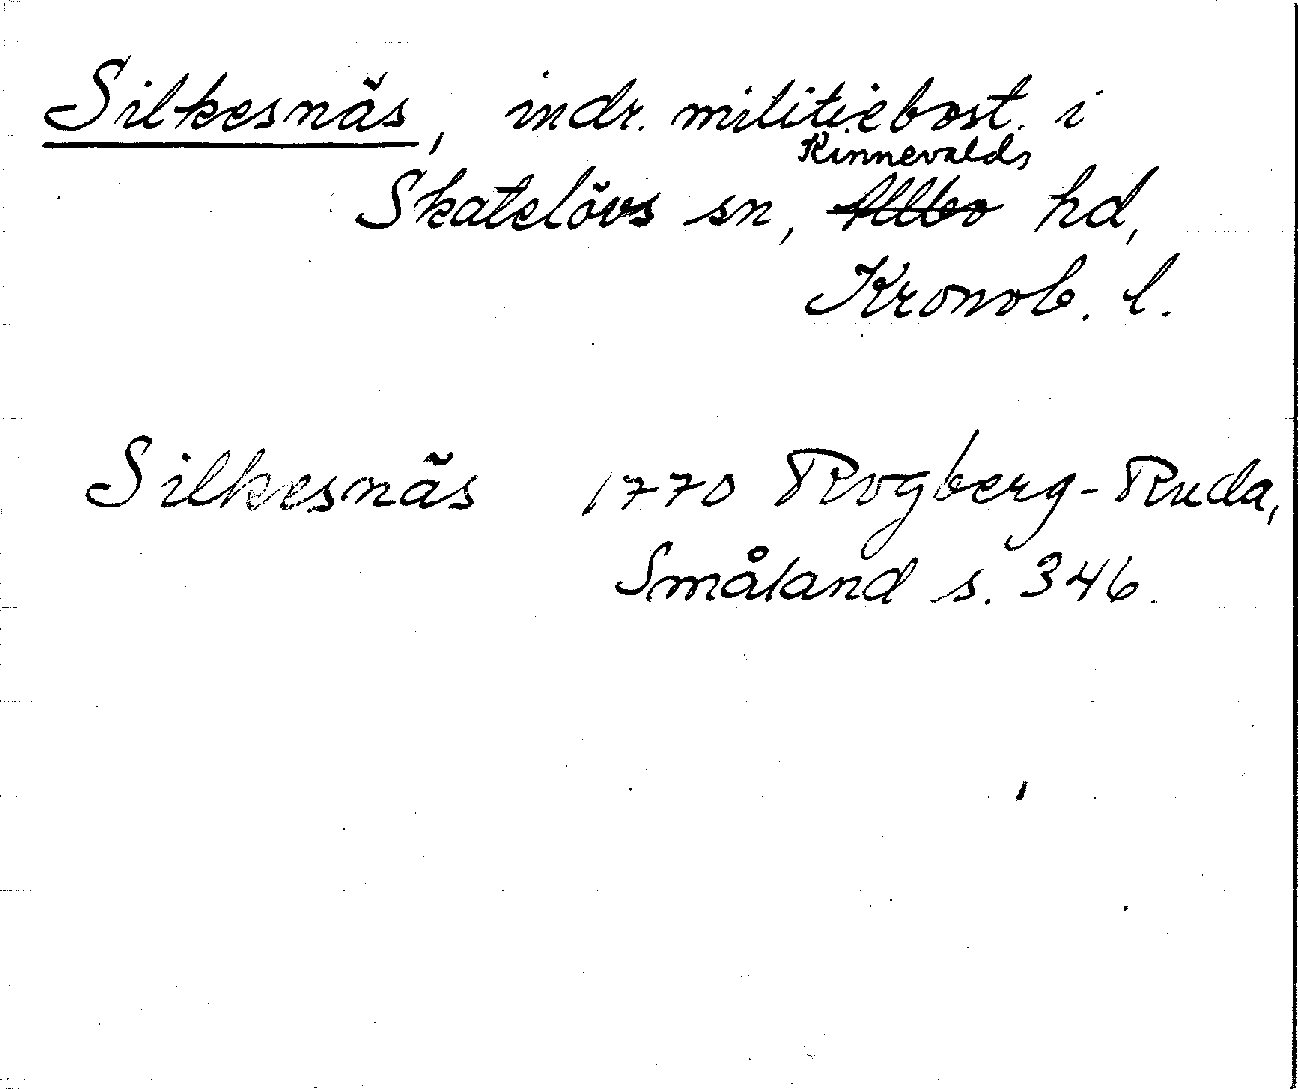 Silkesnäs, indr. militiebost. i
Kinnevalds
Skatelövs sn, Allbo hd,
Kronob. l.
Silkesnäs 1770 Rogberg-Ruda,
Småland s. 346.